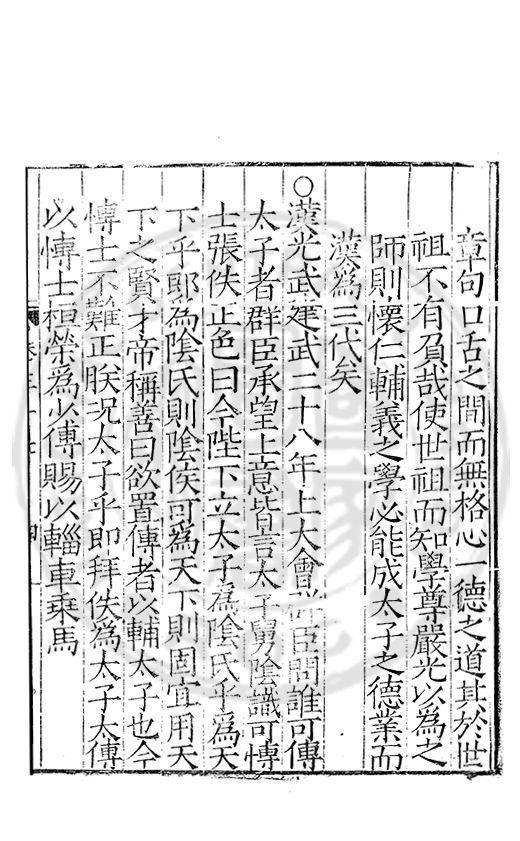 章句口舌之間而無格心一德之道其於世
祖不有負哉使世祖而知學尊嚴光以為之
師則懷仁輔義之學必能成太子之德業而
漢為三代矣
○漢光武建武二十八年上大會群臣問誰可傅
太子者群臣承望上意皆言太子舅陰識可傅
士張佚正色曰今陛下立太子為陰氏乎為天
下乎即為陰氏則陰侯可為天下則固宜用天
下之賢才帝稱善曰欲置傅者以輔太子也今
博士不難正朕況太子乎即拜佚為太子太傅
以博士桓榮為少傅賜以輜車乗馬